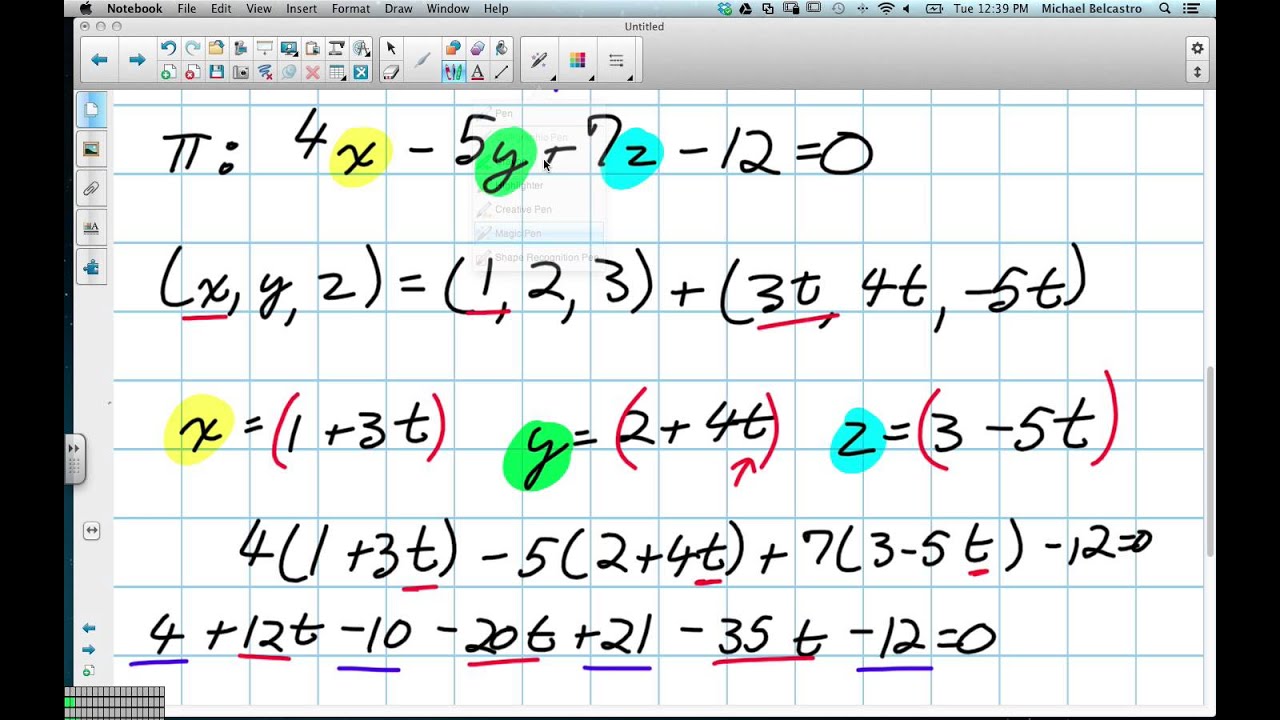 Notebook File Edit View Insert Format Draw Window Help Tue 12:39 PM Michael Belcastro
Untitled
Pen
Highlighter
Creative Pen
Magic Pen
Shape Recognition Pen
π: 4x - 5y + 7z - 12 = 0
(x, y, z) = (1, 2, 3) + (3t, 4t, -5t)
x = (1 + 3t) y = (2 + 4t) z = (3 - 5t)
4(1 + 3t) - 5(2 + 4t) + 7(3 - 5t) - 12 = 0
4 + 12t - 10 - 20t + 21 - 35t - 12 = 0